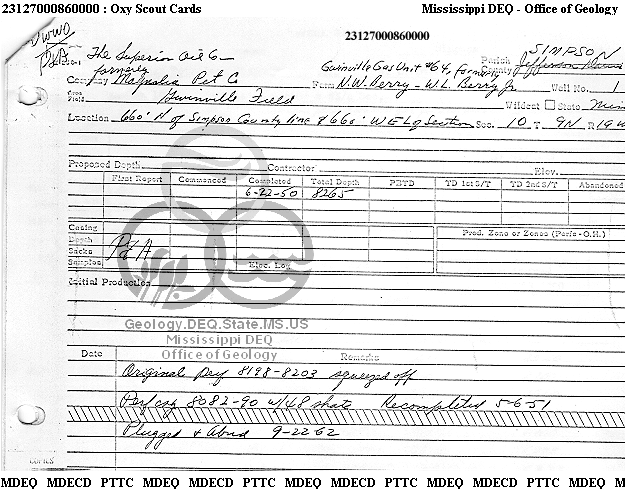 23127000860000 : Oxy Scout Cards Mississippi DEQ - Office of Geology
23127000860000
OWWO SIMPSON
P&A The Superior Oil Co Gwinville Gas Unit #64, formerly Parish Jefferson Davis
formerly County
Company Magnolia Pet Co Farm N.W. Berry - W.L. Berry Jr Well No. 1
Area
Field Gwinville Field Wildcat State Miss
Location 660' N of Simpson County line & 660' W E L of Section Sec. 10 T 9N R 19W
Proposed Depth Contractor Elev.
First Report Commenced Completed Total Depth PBTD TD 1st S/T TD 2nd S/T Abandoned
6-22-50 8265
Casing Prod. Zone or Zones (Perfs-O.H.)
Depth P&A
Sacks
Samples Elec. Log
Initial Production
Geology.DEQ.State.MS.US
Mississippi DEQ
Office of Geology
Date Remarks
Original perf 8198-8203 squeezed off
Perf csg 8082-90 w/48 shots Recompleted 5-6-51
Plugged & Abnd 9-22-62
MDEQ MDECD PTTC MDEQ MDECD PTTC MDEQ MDECD PTTC MDEQ MDECD PTTC MDEQ M